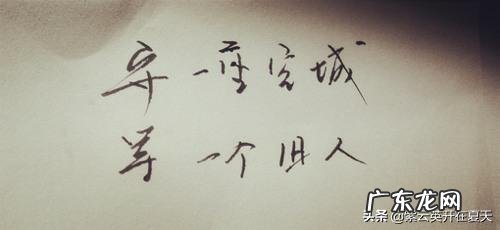 守一座空城
等一个旧人
广东龙网
头条@紫云英开在夏天